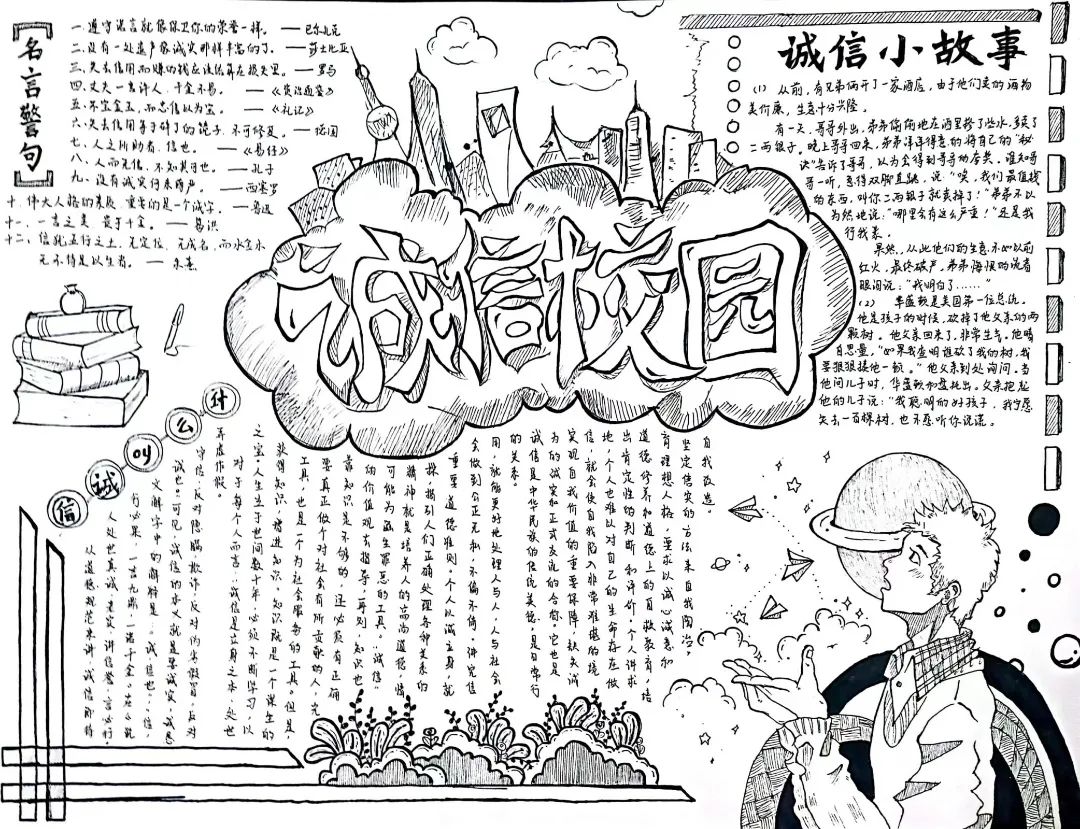 名言警句
一.遵守诺言就像保卫你的荣誉一样。 — 巴尔扎克
二.没有一处遗产像诚实那样丰富的了。 — 莎士比亚
三.失去信用而赚的钱应该结算在损失里。 — 罗马
四.丈夫一言许人,千金不易。 — 《资治通鉴》
五.不宝金玉,而忠信以为宝。 — 《礼记》
六.失去信用等于碎了的镜子,不可修复。 — 德国
七.人之所助者,信也。 — 《易经》
八.人而无信,不知其可也。 — 孔子
九.没有诚实何来尊严。 — 西塞罗
十.伟大人格的素质,重要的是一个诚字。 — 鲁迅
十一.一言之美,贵于千金。 — 葛洪
十二.信犹五行之土,无定位,无成名,而水金木
无不待是以生者。 — 朱熹
诚信校园
诚信小故事
(1) 从前,有兄弟俩开了一家酒店,由于他们卖的酒物
美价廉,生意十分兴隆。
有一天,哥哥外出,弟弟偷偷地在酒里掺了些水,多卖了
二两银子。晚上哥哥回来,弟弟洋洋得意的将自己的"秘
诀"告诉了哥哥,以为会得到哥哥的夸奖。谁知哥
哥一听,急得双脚直跳,说:"唉,我们最值钱
的东西,叫你二两银子就卖掉了!"弟弟不以
为然地说:"哪里会有这么严重!"还是我
行我素。
果然,从此他们的生意不如以前
红火,最终破产,弟弟悔恨的流着
眼泪说:"我明白了……"
(2) 华盛顿是美国第一位总统。
他是孩子的时候,砍掉了他父亲的两
颗树。他父亲回来了,非常生气。他暗
自思量,"如果我查明谁砍了我的树,我
要狠狠揍他一顿。"他父亲到处询问。当
他问儿子时,华盛顿和盘托出。父亲抱起
他的儿子说:"我聪明的好孩子,我宁愿
失去一百棵树,也不愿听你说谎。
什么叫诚信
从道德规范来讲,诚信即待
人处世真诚、老实、讲信誉,言必行,
行必果,一言九鼎,一诺千金。在《说
文解字》中的解释是:"诚,信也","信,
诚也"。可见,诚信的本义就是要诚实、诚恳
守信,反对隐瞒欺诈、反对伪劣假冒,反对
弄虚作假。
对于每个人而言,诚信是立身之本,处世
之宝。人生于世间数十年,必须不断学习,以
获得知识,增进知识。知识既是一个谋生的
工具,也是一个为社会服务的工具。但是,
要真正做个对社会有所贡献的人,光
靠知识是不够的,还必须有正确
的价值观去指导一再则,知识也
可能为成罪恶的工具。"诚信"
精神就是培养人的高尚道德,情
操,指引人们正确处理各种关系的
重要道德准则。个人以诚立身,就
会做到公正无私、不偏不倚,讲究信
用,就能更好地处理人与人,人与社会
的关系。
诚信是中华民族的传统美德,是日常行
为的诚实和正式交流的合信,它也是
实现自我价值的重要保障,缺失诚
信,就会使自我陷入非常难堪的境
地,个人也难以对自己的生命存在做
出肯定性的判断和评价,个人讲求
道德修养和道德上的自我教育,培
育理想人格,要求以诚心诚意和
坚定信实的方法来自我陶冶,
自我改造。